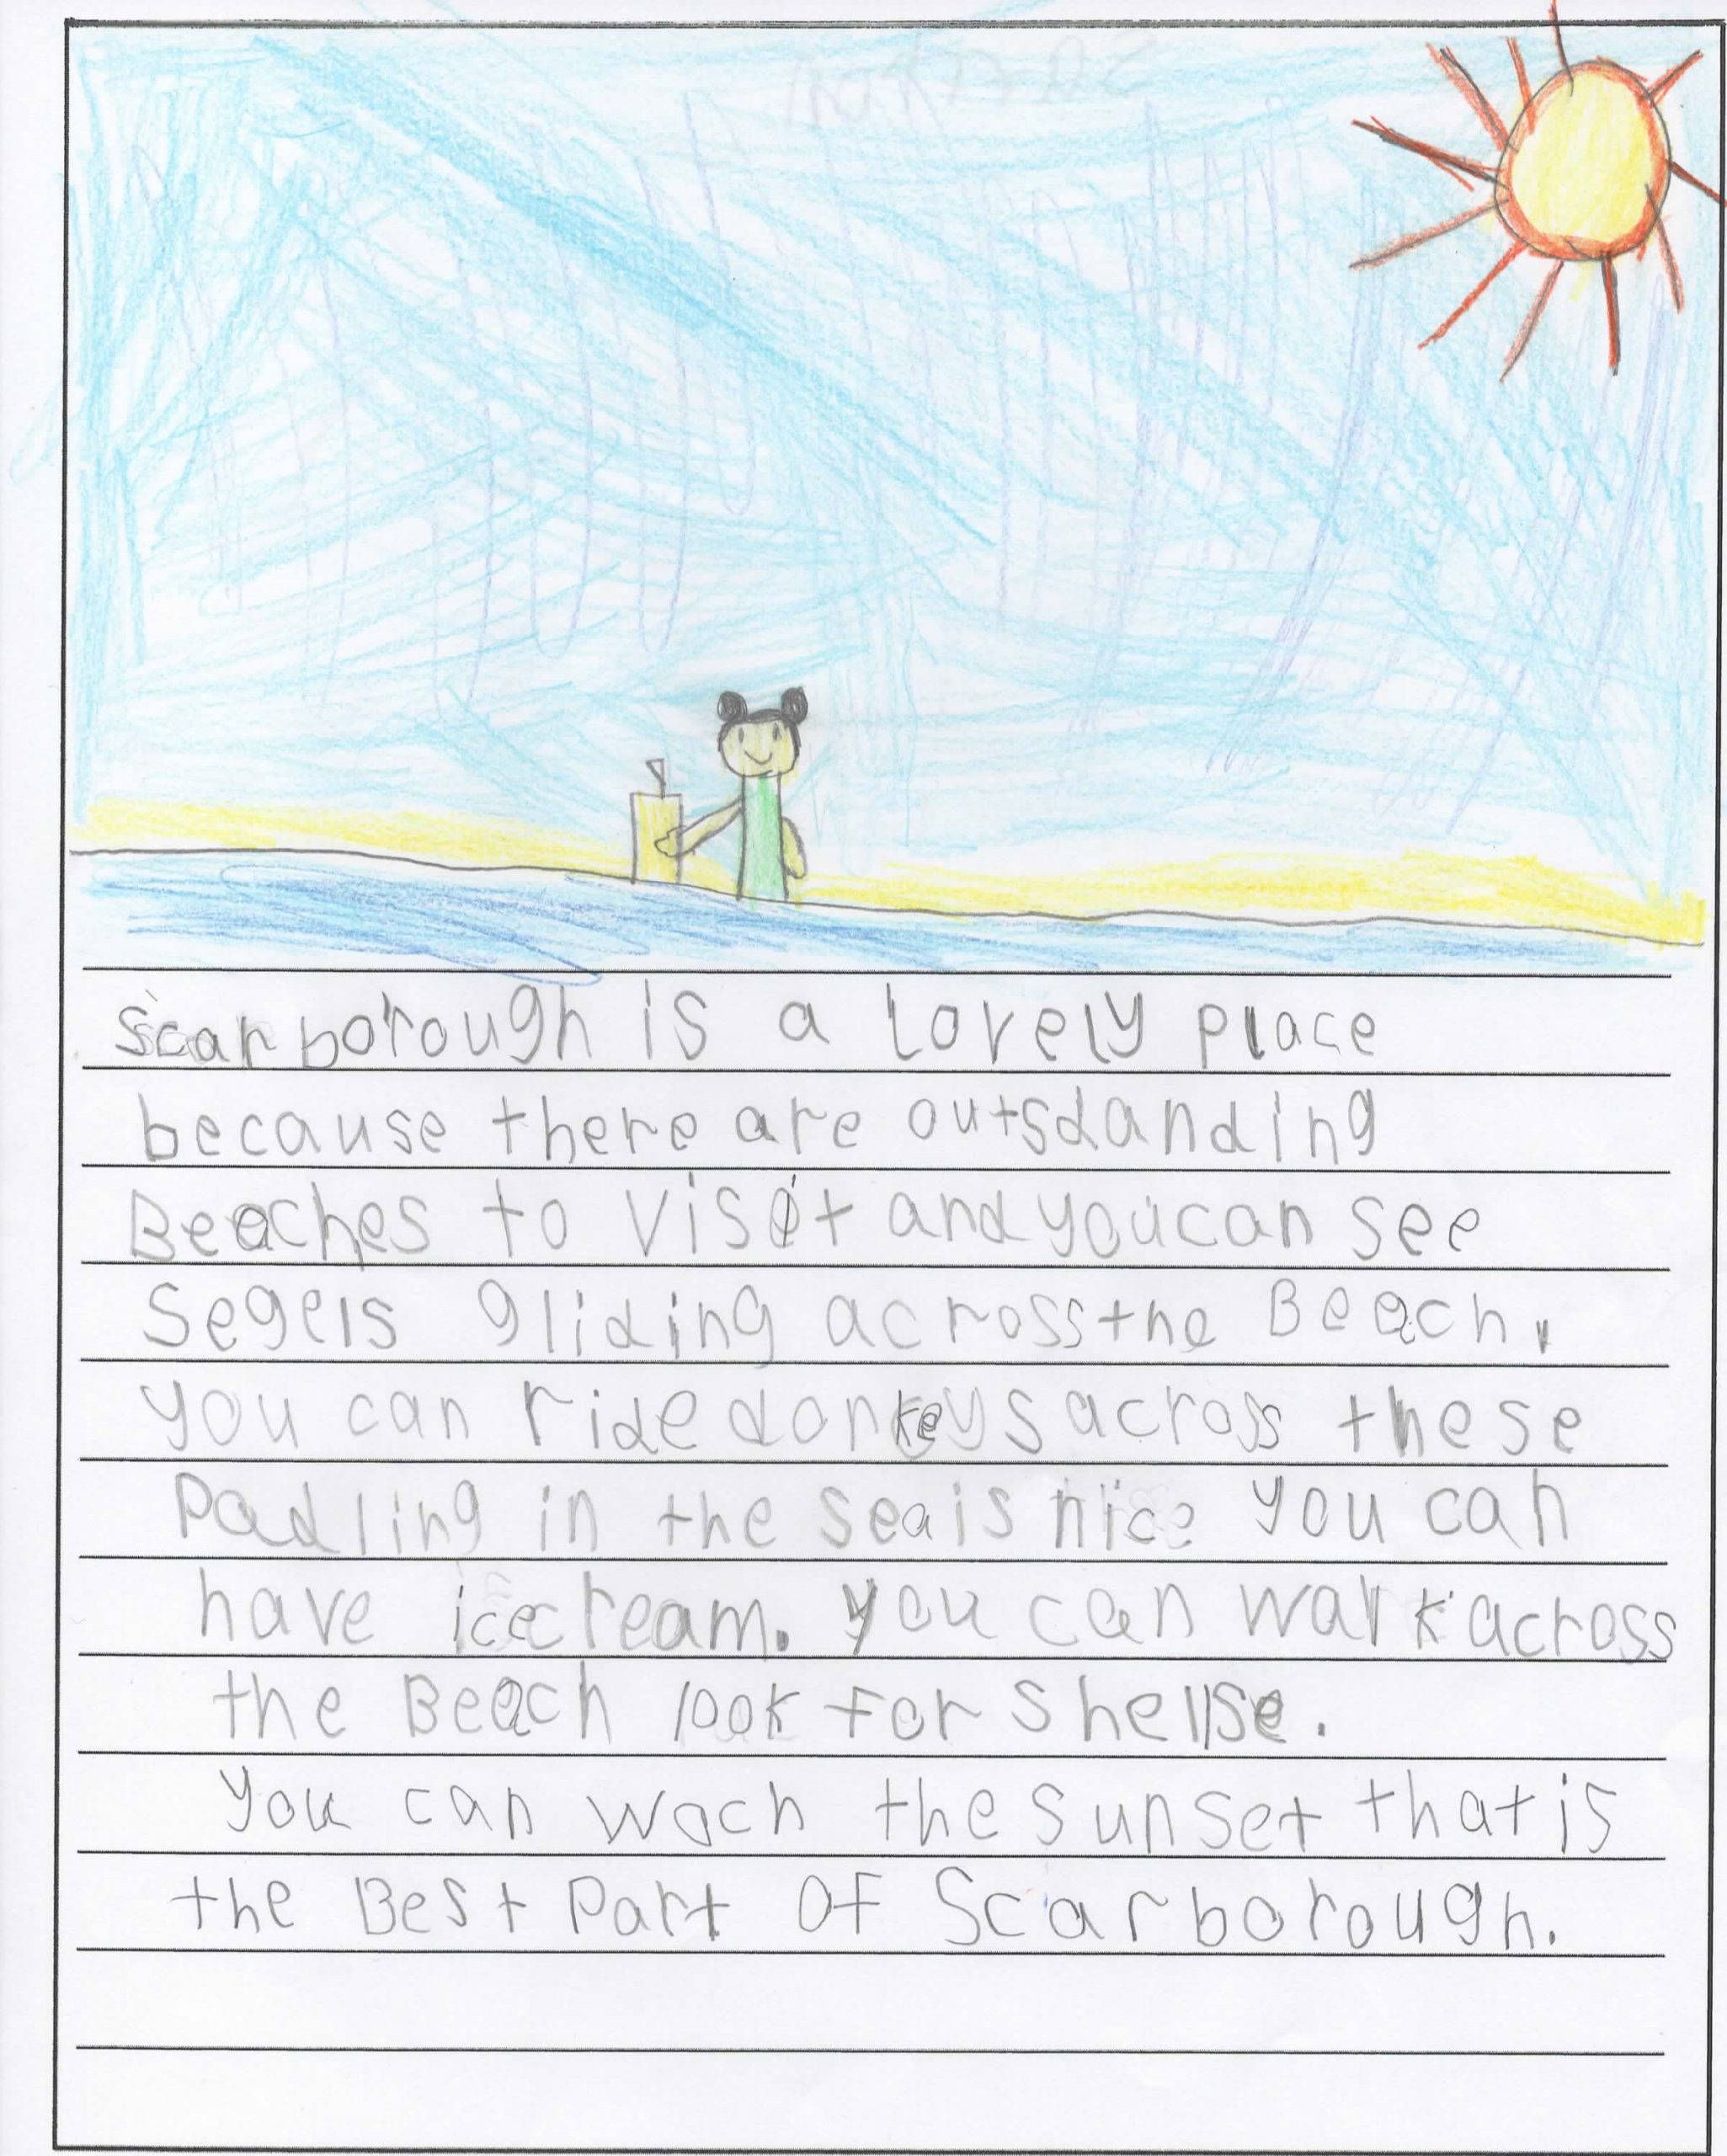 scarborough is a lovely place
because there are outsdanding
Beaches to visit and you can see
segels gliding across the Beach.
you can ride donkeys across these
Padling in the sea is nice you can
have icecream. you can walk across
the Beach look for shellse.
you can wach the sunset that is
the Best Part of Scarborough.